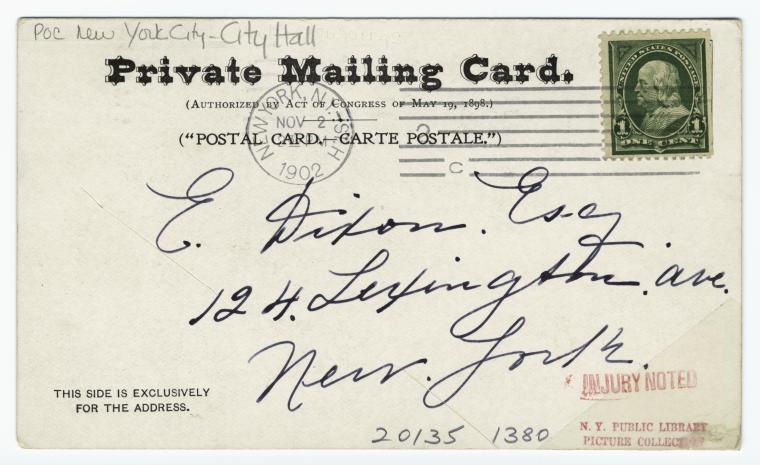 POC New York City - City Hall
Private Mailing Card.
(AUTHORIZED BY ACT OF CONGRESS OF MAY 19, 1898.)
("POSTAL CARD. CARTE POSTALE.")
NEW YORK, N.Y. STA. H
NOV 2
1902
2
C
UNITED STATES POSTAGE
1 1
ONE CENT
E. Dixon. Esq
124. Lexington. ave.
New. York.
INJURY NOTED
THIS SIDE IS EXCLUSIVELY
FOR THE ADDRESS.
N. Y. PUBLIC LIBRARY
PICTURE COLLECTION
20135 1380